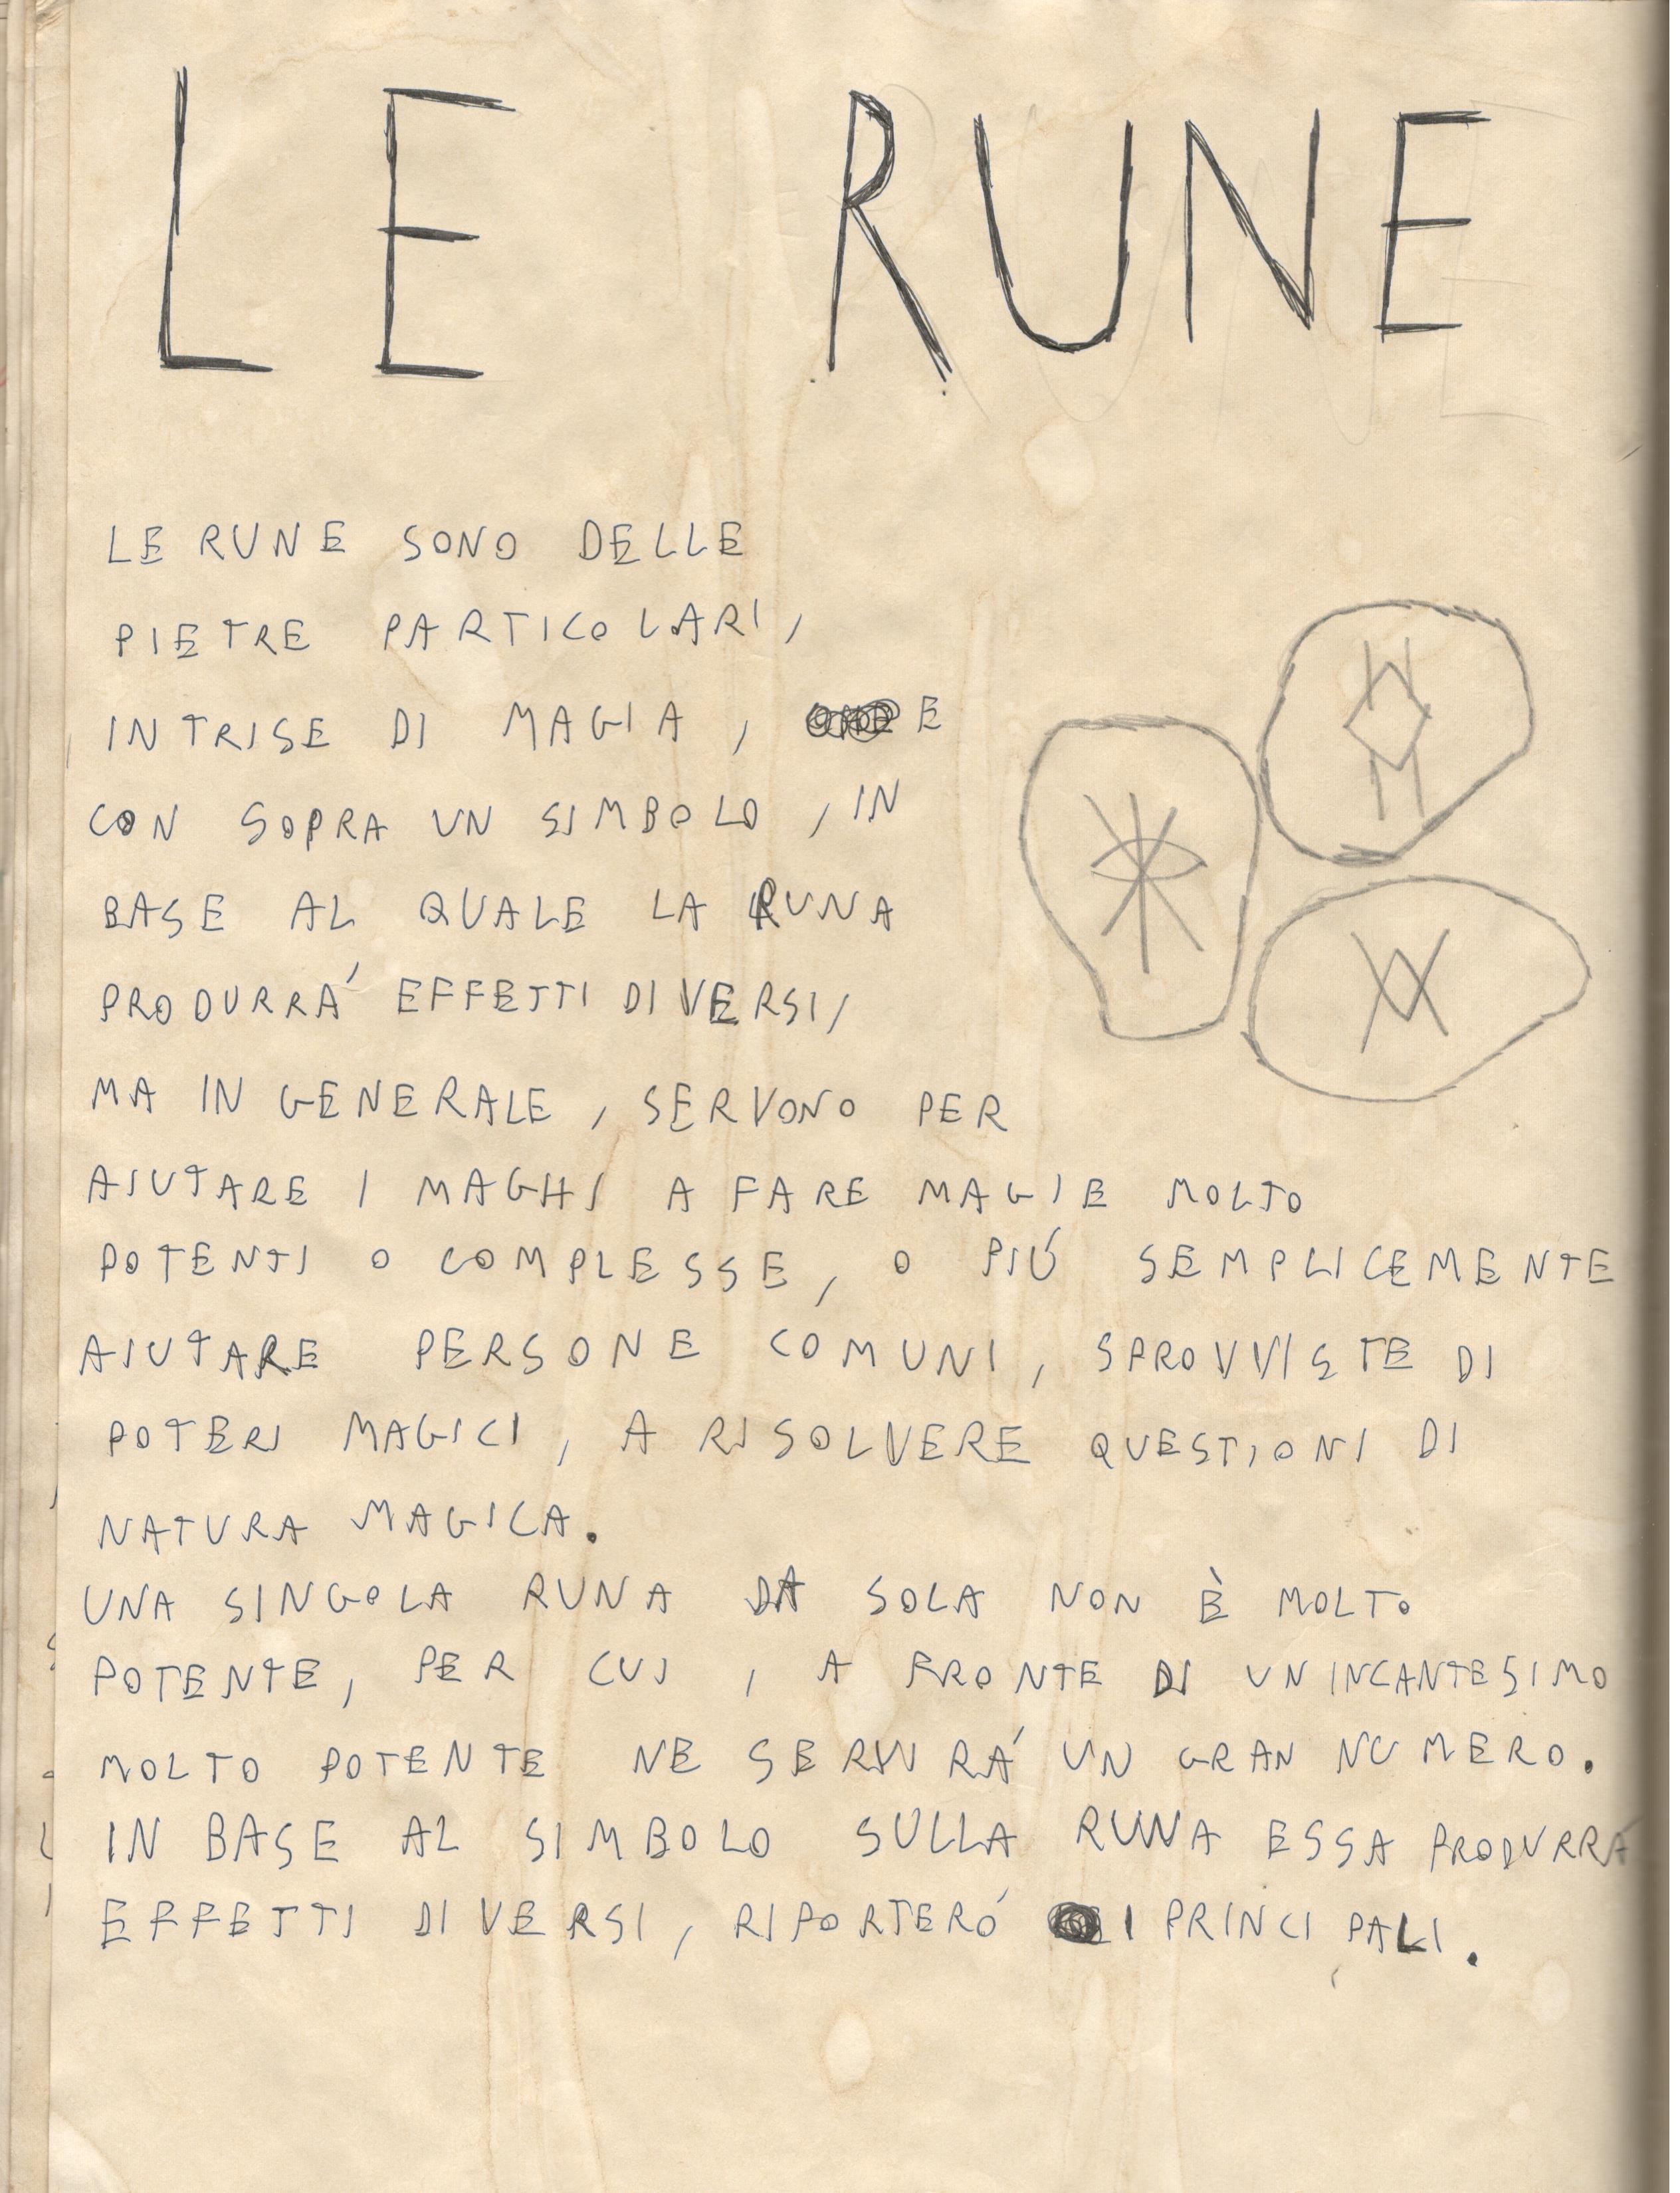 LE RUNE
LE RUNE SONO DELLE
PIETRE PARTICOLARI,
INTRISE DI MAGIA, E
CON SOPRA UN SIMBOLO, IN
BASE AL QUALE LA RUNA
PRODURRÁ EFFETTI DIVERSI,
MA IN GENERALE, SERVONO PER
AIUTARE I MAGHI A FARE MAGIE MOLTO
POTENTI O COMPLESSE, O PIÚ SEMPLICEMENTE
AIUTARE PERSONE COMUNI, SPROVVISTE DI
POTERI MAGICI, A RISOLVERE QUESTIONI DI
NATURA MAGICA.
UNA SINGOLA RUNA DA SOLA NON È MOLTO
POTENTE, PER CUI, A FRONTE DI UN INCANTESIMO
MOLTO POTENTE NE SERVIRÁ UN GRAN NUMERO.
IN BASE AL SIMBOLO SULLA RUNA ESSA PRODURRÁ
EFFETTI DIVERSI, RIPORTERÓ I PRINCIPALI.